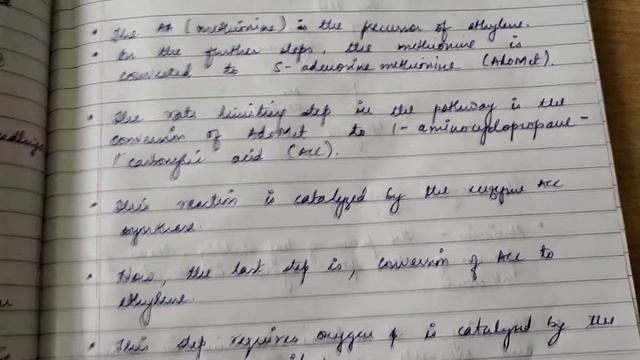 • The AA (methionine) is the precursor of ethylene.
• In the further steps, the methionine is
converted to S-adenosine methionine (AdoMet).
• The rate limiting step in the pathway is the
conversion of AdoMet to 1-aminocyclopropane-
1 carboxylic acid (ACC).
• This reaction is catalyzed by the enzyme ACC
synthase.
• Now, the last step is, conversion of ACC to
ethylene.
• This step requires oxygen & is catalyzed by the